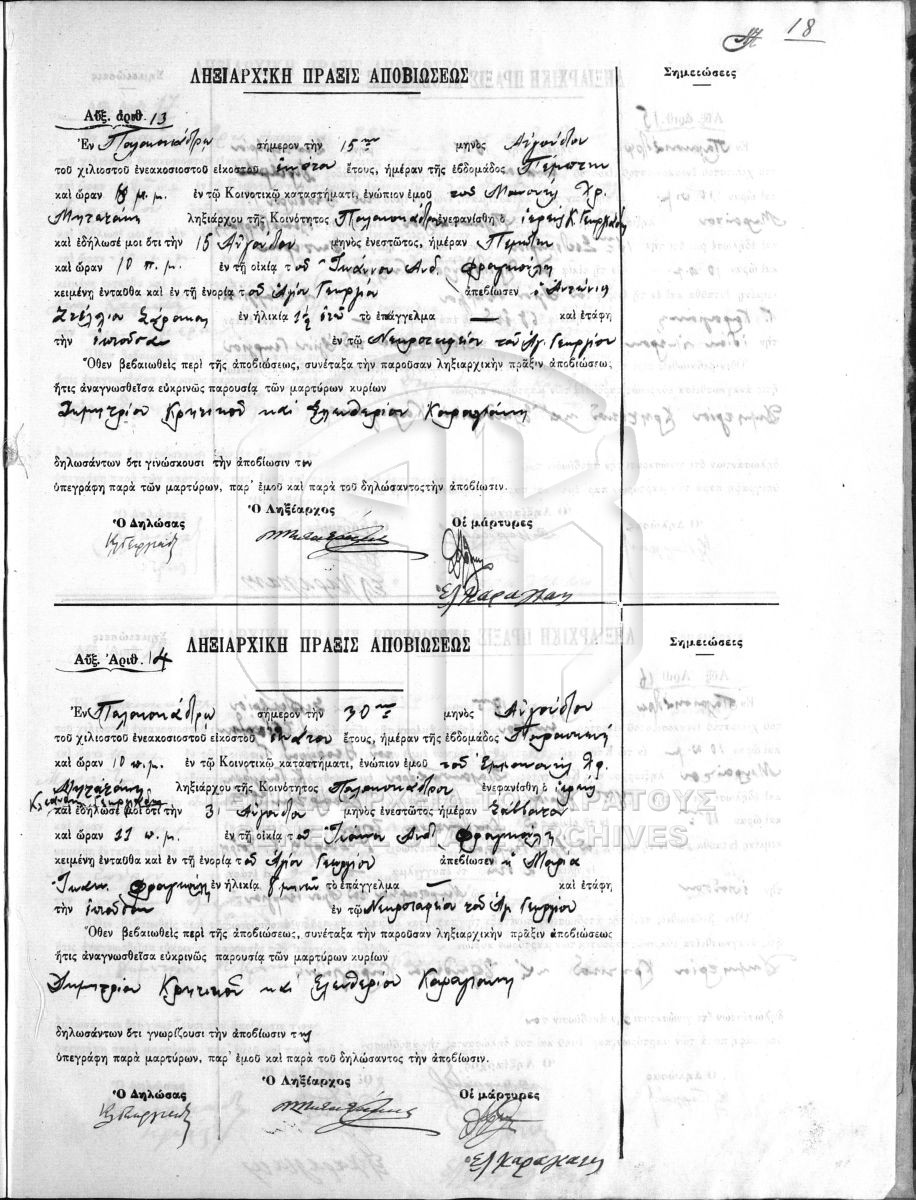 18
ΛΗΞΙΑΡΧΙΚΗ ΠΡΑΞΙΣ ΑΠΟΒΙΩΣΕΩΣ
Σημειώσεις
Αὔξ. ἀριθ. 13
Ἐν σήμερον τὴν 15 μηνὸς Αὐγούστου
τοῦ χιλιοστοῦ ἐνεακοσιοστοῦ εἰκοστοῦ ἔτους, ἡμέραν τῆς ἑβδομάδος Πέμπτην
καὶ ὥραν μ.μ. ἐν τῷ Κοινοτικῷ καταστήματι, ἐνώπιον ἐμοῦ τοῦ Χρ.
Μητατάκη ληξιάρχου τῆς Κοινότητος ἐνεφανίσθη ὁ ἱερεὺς Κ. Γεωργιάδης
καὶ ἐδήλωσέ μοι ὅτι τὴν 15 Αὐγούστου μηνὸς ἐνεστῶτος, ἡμέραν Πέμπτην
καὶ ὥραν 10 π.μ. ἐν τῇ οἰκίᾳ τοῦ Ἰωάννου Ἀνδ. Φραγκούλη
κειμένῃ ἐνταῦθα καὶ ἐν τῇ ἐνορίᾳ τοῦ Ἁγίου Γεωργίου ἀπεβίωσεν ὁ Ἀντώνιος
ἐν ἡλικίᾳ τὸ ἐπάγγελμα — καὶ ἐτάφη
τὴν ἐπιοῦσαν ἐν τῷ Νεκροταφείον τοῦ Ἁγ. Γεωργίου
Ὅθεν βεβαιωθεὶς περὶ τῆς ἀποβιώσεως, συνέταξα τὴν παροῦσαν ληξιαρχικὴν πρᾶξιν ἀποβιώσεως
ἥτις ἀναγνωσθεῖσα εὐκρινῶς παρουσίᾳ τῶν μαρτύρων κυρίων
Δημητρίου Κρητικοῦ καὶ Ἐλευθερίου Καραγιάννη
δηλωσάντων ὅτι γινώσκουσι τὴν ἀποβίωσιν του
ὑπεγράφη παρὰ τῶν μαρτύρων, παρ' ἐμοῦ καὶ παρὰ τοῦ δηλώσαντος τὴν ἀποβίωσιν.
Ὁ Δηλώσας Ὁ Ληξίαρχος Οἱ μάρτυρες
ΛΗΞΙΑΡΧΙΚΗ ΠΡΑΞΙΣ ΑΠΟΒΙΩΣΕΩΣ
Σημειώσεις
Αὔξ. Ἀριθ. 14
Ἐν σήμερον τὴν 30 μηνὸς Αὐγούστου
τοῦ χιλιοστοῦ ἐνεακοσιοστοῦ εἰκοστοῦ ἐνάτου ἔτους, ἡμέραν τῆς ἑβδομάδος Παρασκευή
καὶ ὥραν 10 π.μ. ἐν τῷ Κοινοτικῷ καταστήματι, ἐνώπιον ἐμοῦ τοῦ Ἐμμανουὴλ Χρ.
Μητατάκη ληξιάρχου τῆς Κοινότητος ἐνεφανίσθη ὁ ἱερεὺς
καὶ ἐδήλωσέ μοι ὅτι τὴν 3 Αὐγούστου μηνὸς ἐνεστῶτος ἡμέραν Σάββατον
καὶ ὥραν 11 π.μ. ἐν τῇ οἰκίᾳ τοῦ Ἰωάννου Ἀνδ. Φραγκούλη
κειμένῃ ἐνταῦθα καὶ ἐν τῇ ἐνορίᾳ τοῦ Ἁγίου Γεωργίου ἀπεβίωσεν ἡ Μαρία
Ἰωάν. Φραγκούλη ἐν ἡλικίᾳ μηνῶν τὸ ἐπάγγελμα — καὶ ἐτάφη
τὴν ἐπιοῦσαν ἐν τῷ Νεκροταφείον τοῦ Ἁγ Γεωργίου
Ὅθεν βεβαιωθεὶς περὶ τῆς ἀποβιώσεως, συνέταξα τὴν παροῦσαν ληξιαρχικὴν πρᾶξιν ἀποβιώσεως
ἥτις ἀναγνωσθεῖσα εὐκρινῶς παρουσίᾳ τῶν μαρτύρων κυρίων
Δημητρίου Κρητικοῦ καὶ Ἐλευθερίου Καραγιάννη
δηλωσάντων ὅτι γνωρίζουσι τὴν ἀποβίωσιν της
ὑπεγράφη παρὰ μαρτύρων, παρ' ἐμοῦ καὶ παρὰ τοῦ δηλώσαντος τὴν ἀποβίωσιν.
Ὁ Δηλώσας Ὁ Ληξίαρχος Οἱ μάρτυρες